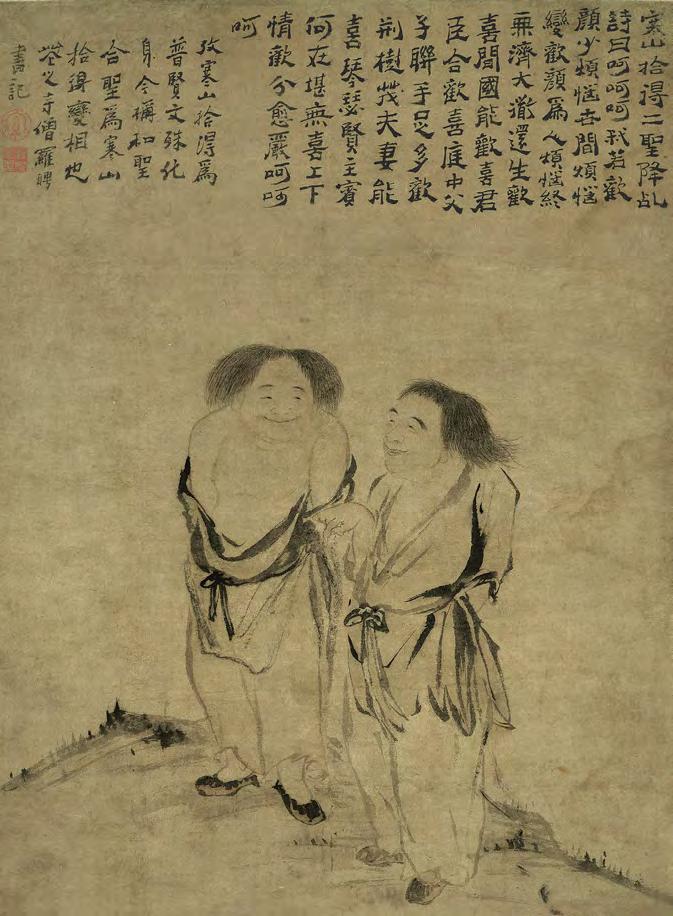 寒山拾得二聖降乩
詩曰呵呵呵我若歡
顏少煩惱世間煩惱
變歡顏為人煩惱終
無濟大道還生歡
喜間國能歡喜君
臣合歡喜庭中父
子聯手足多歡
荊樹茂夫妻能
喜琴瑟賢主賓
何在堪無喜上下
情歡分愈嚴呵呵
呵
攷寒山拾得為
普賢文殊化
身今稱和聖
合聖為寒山
拾得變相也
花之寺僧羅聘
書記